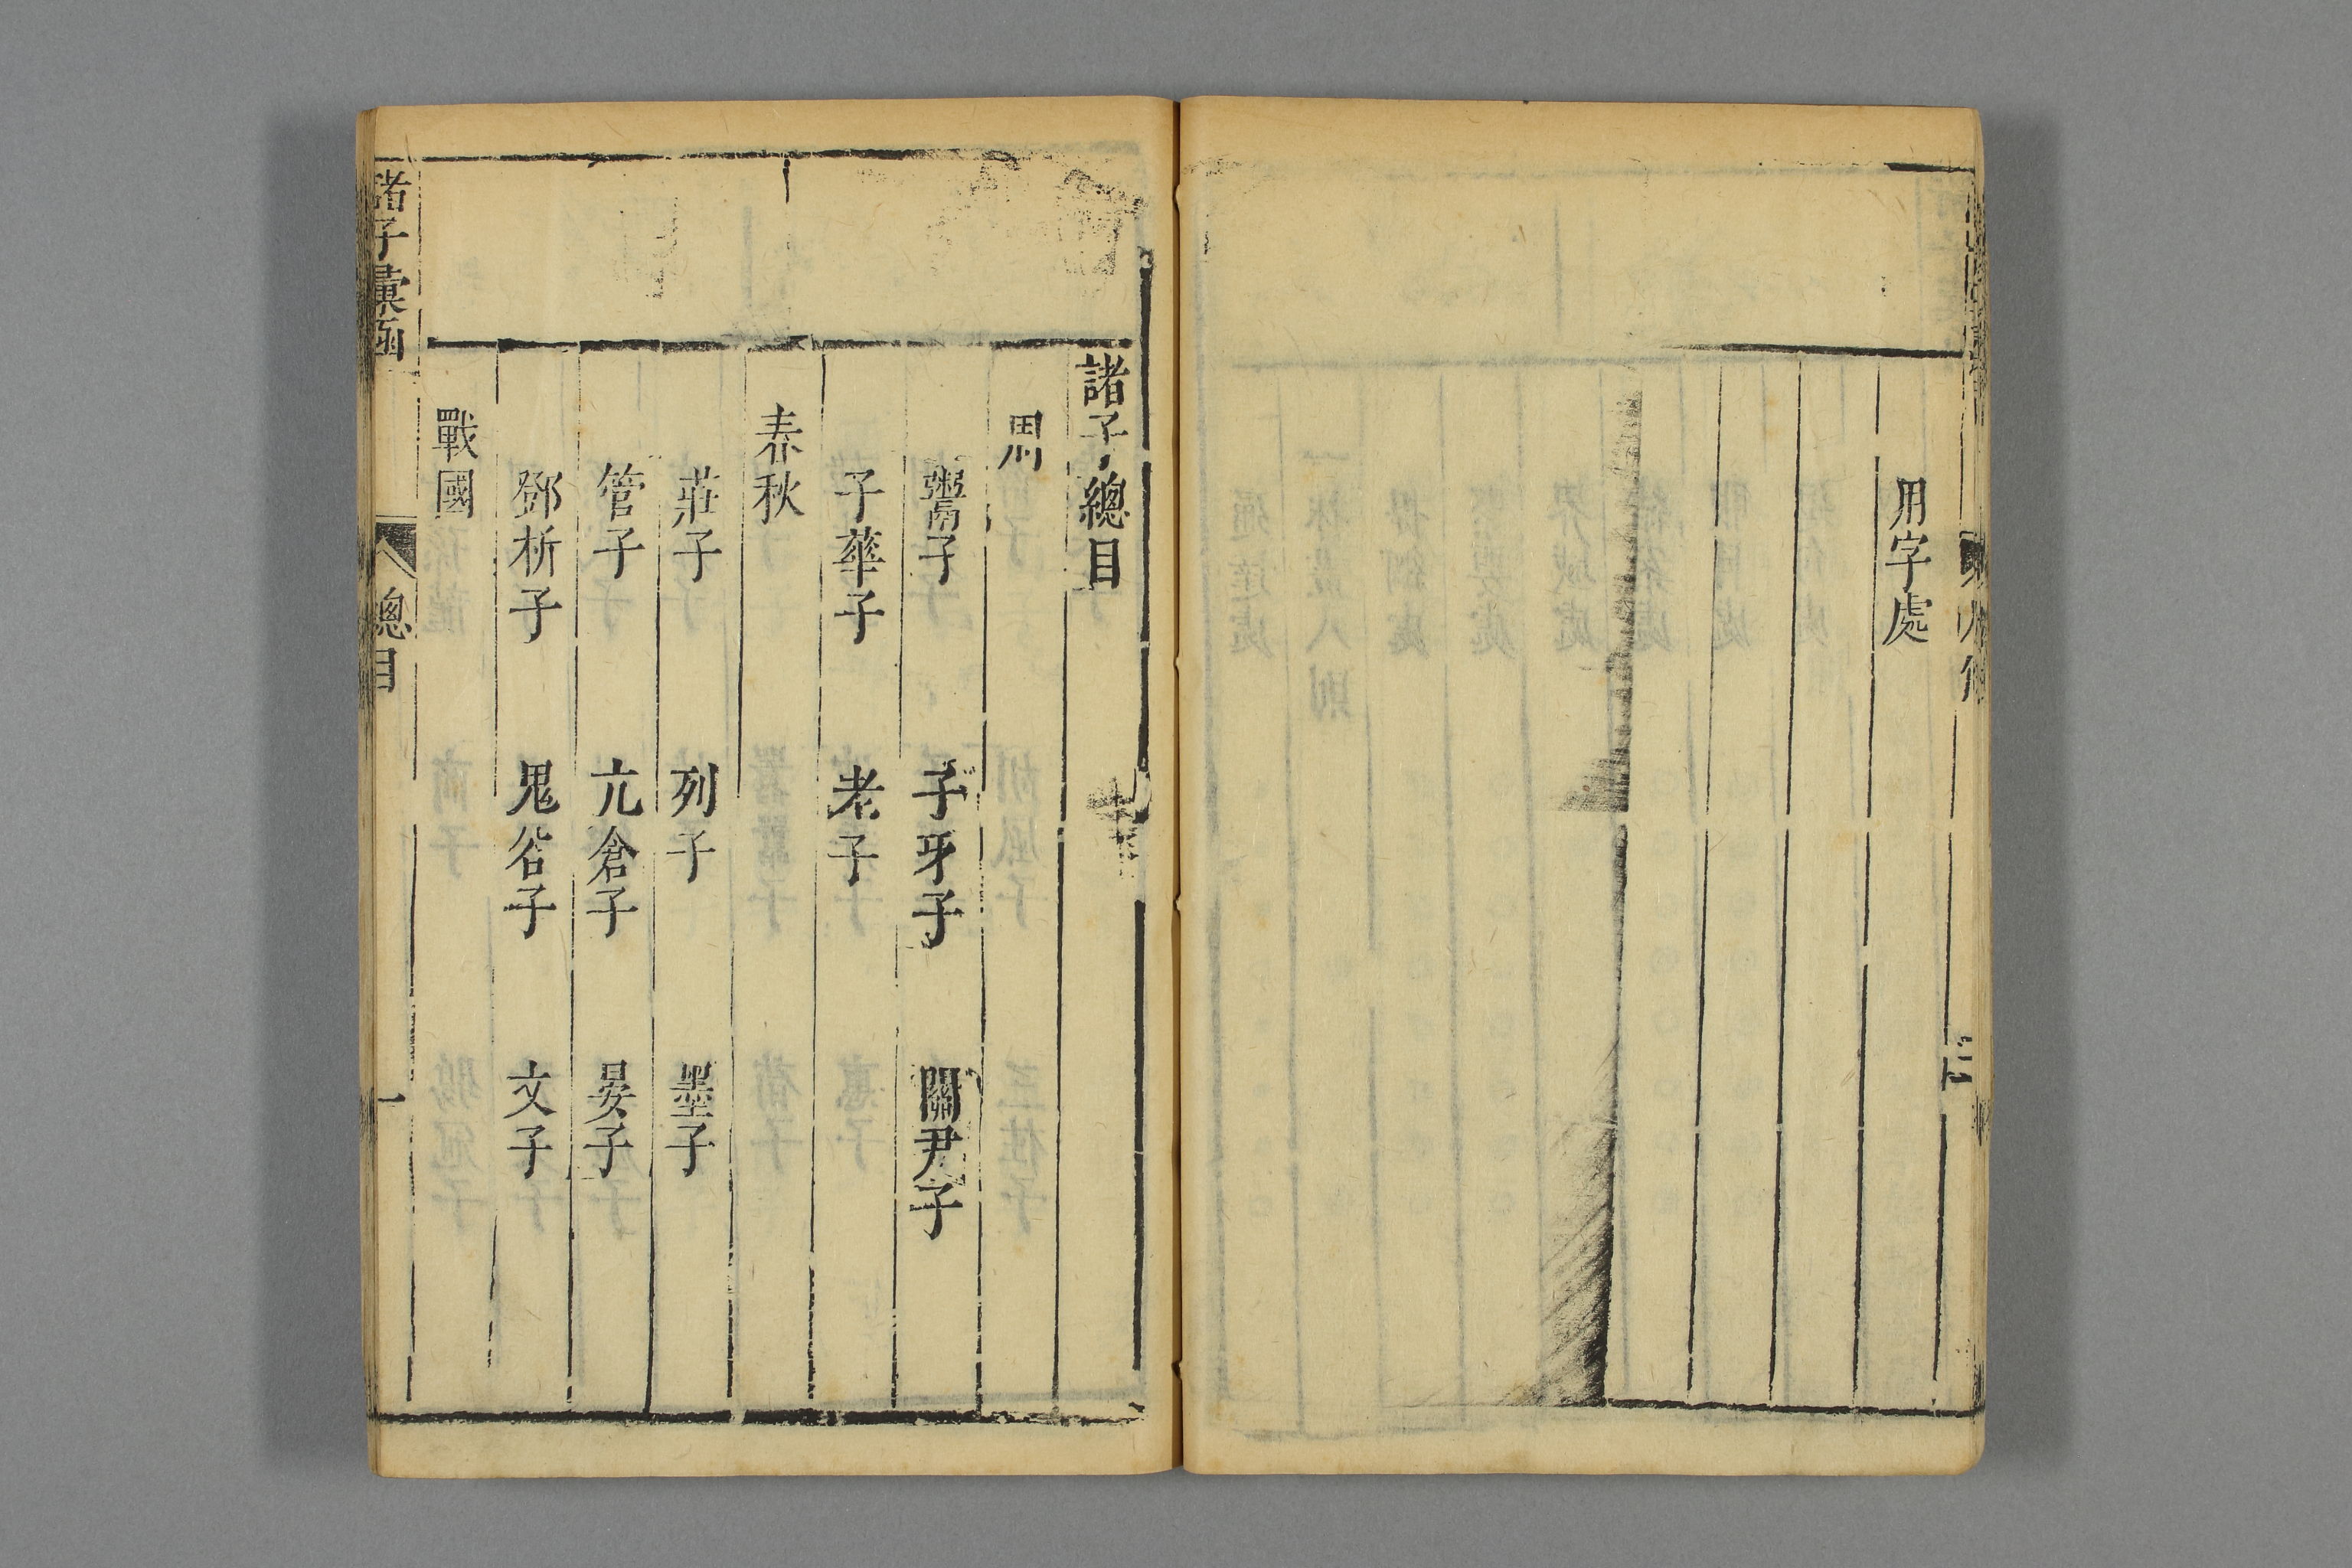 用字處
諸子總目
周
鬻子 子牙子 關尹子
子華子 老子
春秋
莊子 列子 墨子
管子 亢倉子 晏子
鄧析子 鬼谷子 文子
戰國
諸子彙函 總目 一